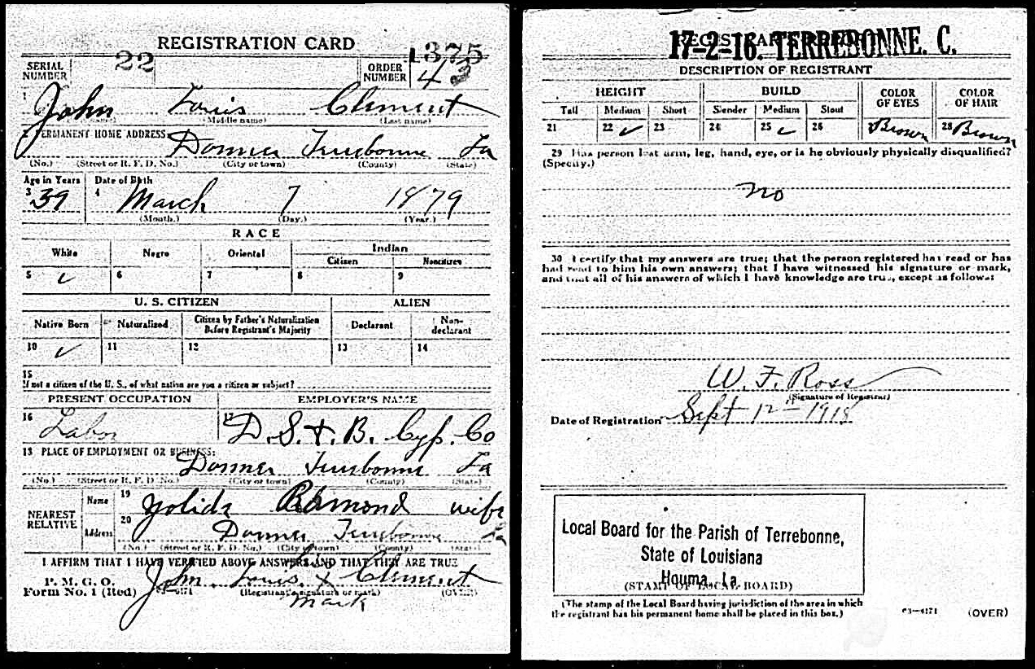 REGISTRATION CARD
SERIAL NUMBER 22 ORDER NUMBER 1375
4
1 John Louis Clement
(Middle name) (Last name)
2 PERMANENT HOME ADDRESS:
Donner Terrebonne La
(No.) (Street or R. F. D. No.) (City or town) (County) (State)
Age in Years Date of Birth
3 39 4 March 7 1879
(Month.) (Day.) (Year.)
RACE
White Negro Oriental Indian
Citizen Noncitizen
5 ✓ 6 7 8 9
U. S. CITIZEN ALIEN
Native Born Naturalized Citizen by Father's Naturalization Before Registrant's Majority Declarant Non-declarant
10 ✓ 11 12 13 14
15
If not a citizen of the U. S., of what nation are you a citizen or subject?
PRESENT OCCUPATION EMPLOYER'S NAME
16 Labor 17 D. S. & B. Cyp. Co
18 PLACE OF EMPLOYMENT OR BUSINESS:
Donner Terrebonne La
(No.) (Street or R. F. D. No.) (City or town) (County) (State)
NEAREST RELATIVE Name 19 wife
Address 20 Donner Terrebonne
(No.) (Street or R. F. D. No.) (City or town) (County) (State)
I AFFIRM THAT I HAVE VERIFIED ABOVE ANSWERS AND THAT THEY ARE TRUE
P. M. G. O.
Form No. 1 (Red) John Louis x Clement
(Registrant's signature or mark) (OVER)
mark
17-2-16. TERREBONNE. C.
DESCRIPTION OF REGISTRANT
HEIGHT BUILD COLOR OF EYES COLOR OF HAIR
Tall Medium Short Slender Medium Stout
21 22 ✓ 23 24 25 ✓ 26 27 Brown 28 Brown
29 Has person lost arm, leg, hand, eye, or is he obviously physically disqualified?
(Specify.)
no
30 I certify that my answers are true; that the person registered has read or has
had read to him his own answers; that I have witnessed his signature or mark,
and that all of his answers of which I have knowledge are true, except as follows:
W. F. Ross
(Signature of Registrar)
Date of Registration Sept 12 - 1918
Local Board for the Parish of Terrebonne,
State of Louisiana
Houma, La.
(STAMP OF LOCAL BOARD)
(The stamp of the Local Board having jurisdiction of the area in which
the registrant has his permanent home shall be placed in this box.)
03—6171 (OVER)